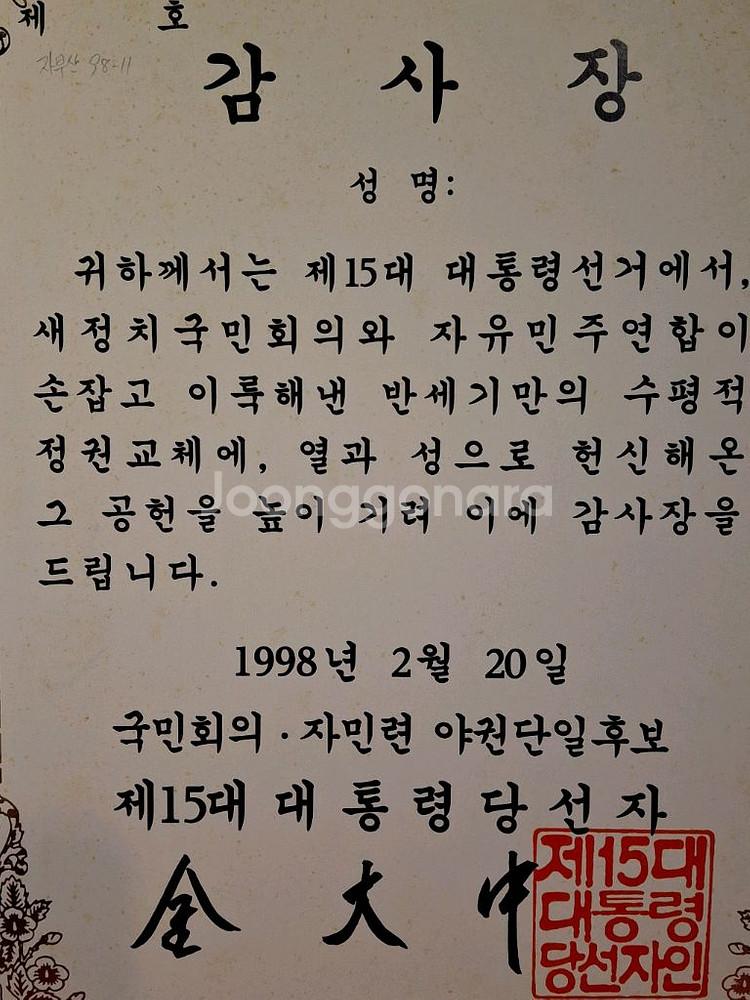 제 호
자부산 98-11
감 사 장
성 명:
귀하께서는 제15대 대통령선거에서,
새정치국민회의와 자유민주연합이
손잡고 이룩해낸 반세기만의 수평적
정권교체에, 열과 성으로 헌신해온
그 공헌을 높이 기려 이에 감사장을
드립니다.
Joonggonara
1998년 2월 20일
국민회의·자민련 야권단일후보
제15대 대통령당선자
金大中
제15대
대통령
당선자인